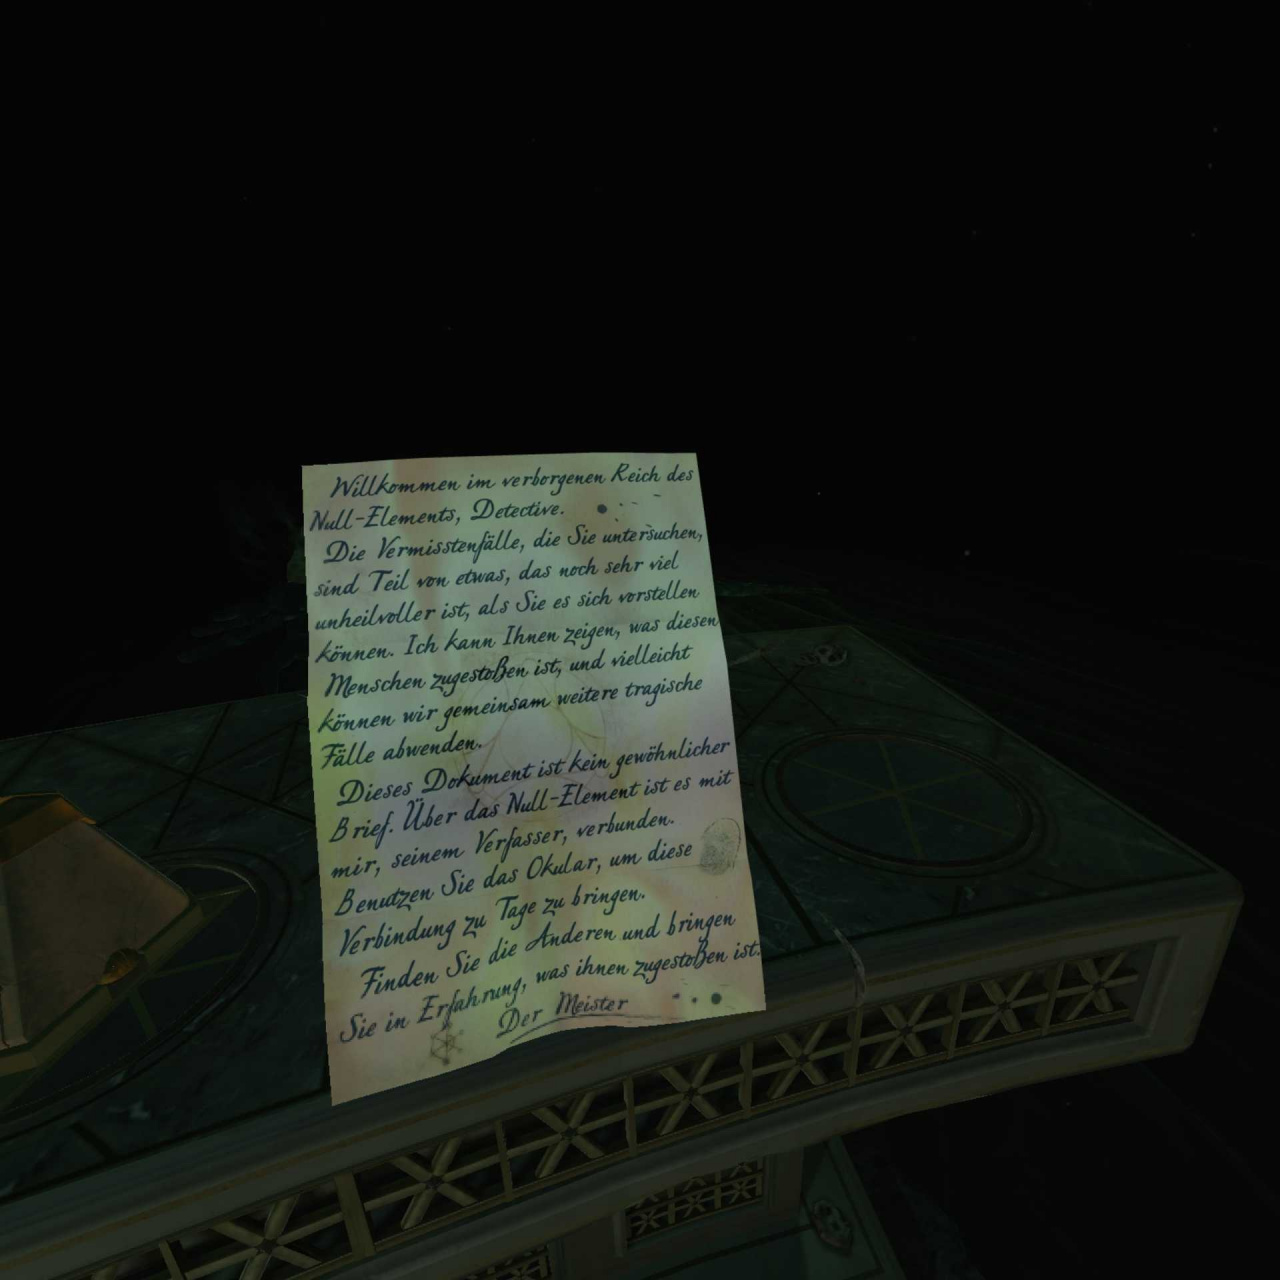 Willkommen im verborgenen Reich des
Null-Elements, Detective.
Die Vermisstenfälle, die Sie untersuchen,
sind Teil von etwas, das noch sehr viel
unheilvoller ist, als Sie es sich vorstellen
können. Ich kann Ihnen zeigen, was diesen
Menschen zugestoßen ist, und vielleicht
können wir gemeinsam weitere tragische
Fälle abwenden.
Dieses Dokument ist kein gewöhnlicher
Brief. Über das Null-Element ist es mit
mir, seinem Verfasser, verbunden.
Benutzen Sie das Okular, um diese
Verbindung zu Tage zu bringen.
Finden Sie die Anderen und bringen
Sie in Erfahrung, was ihnen zugestoßen ist.
Der Meister